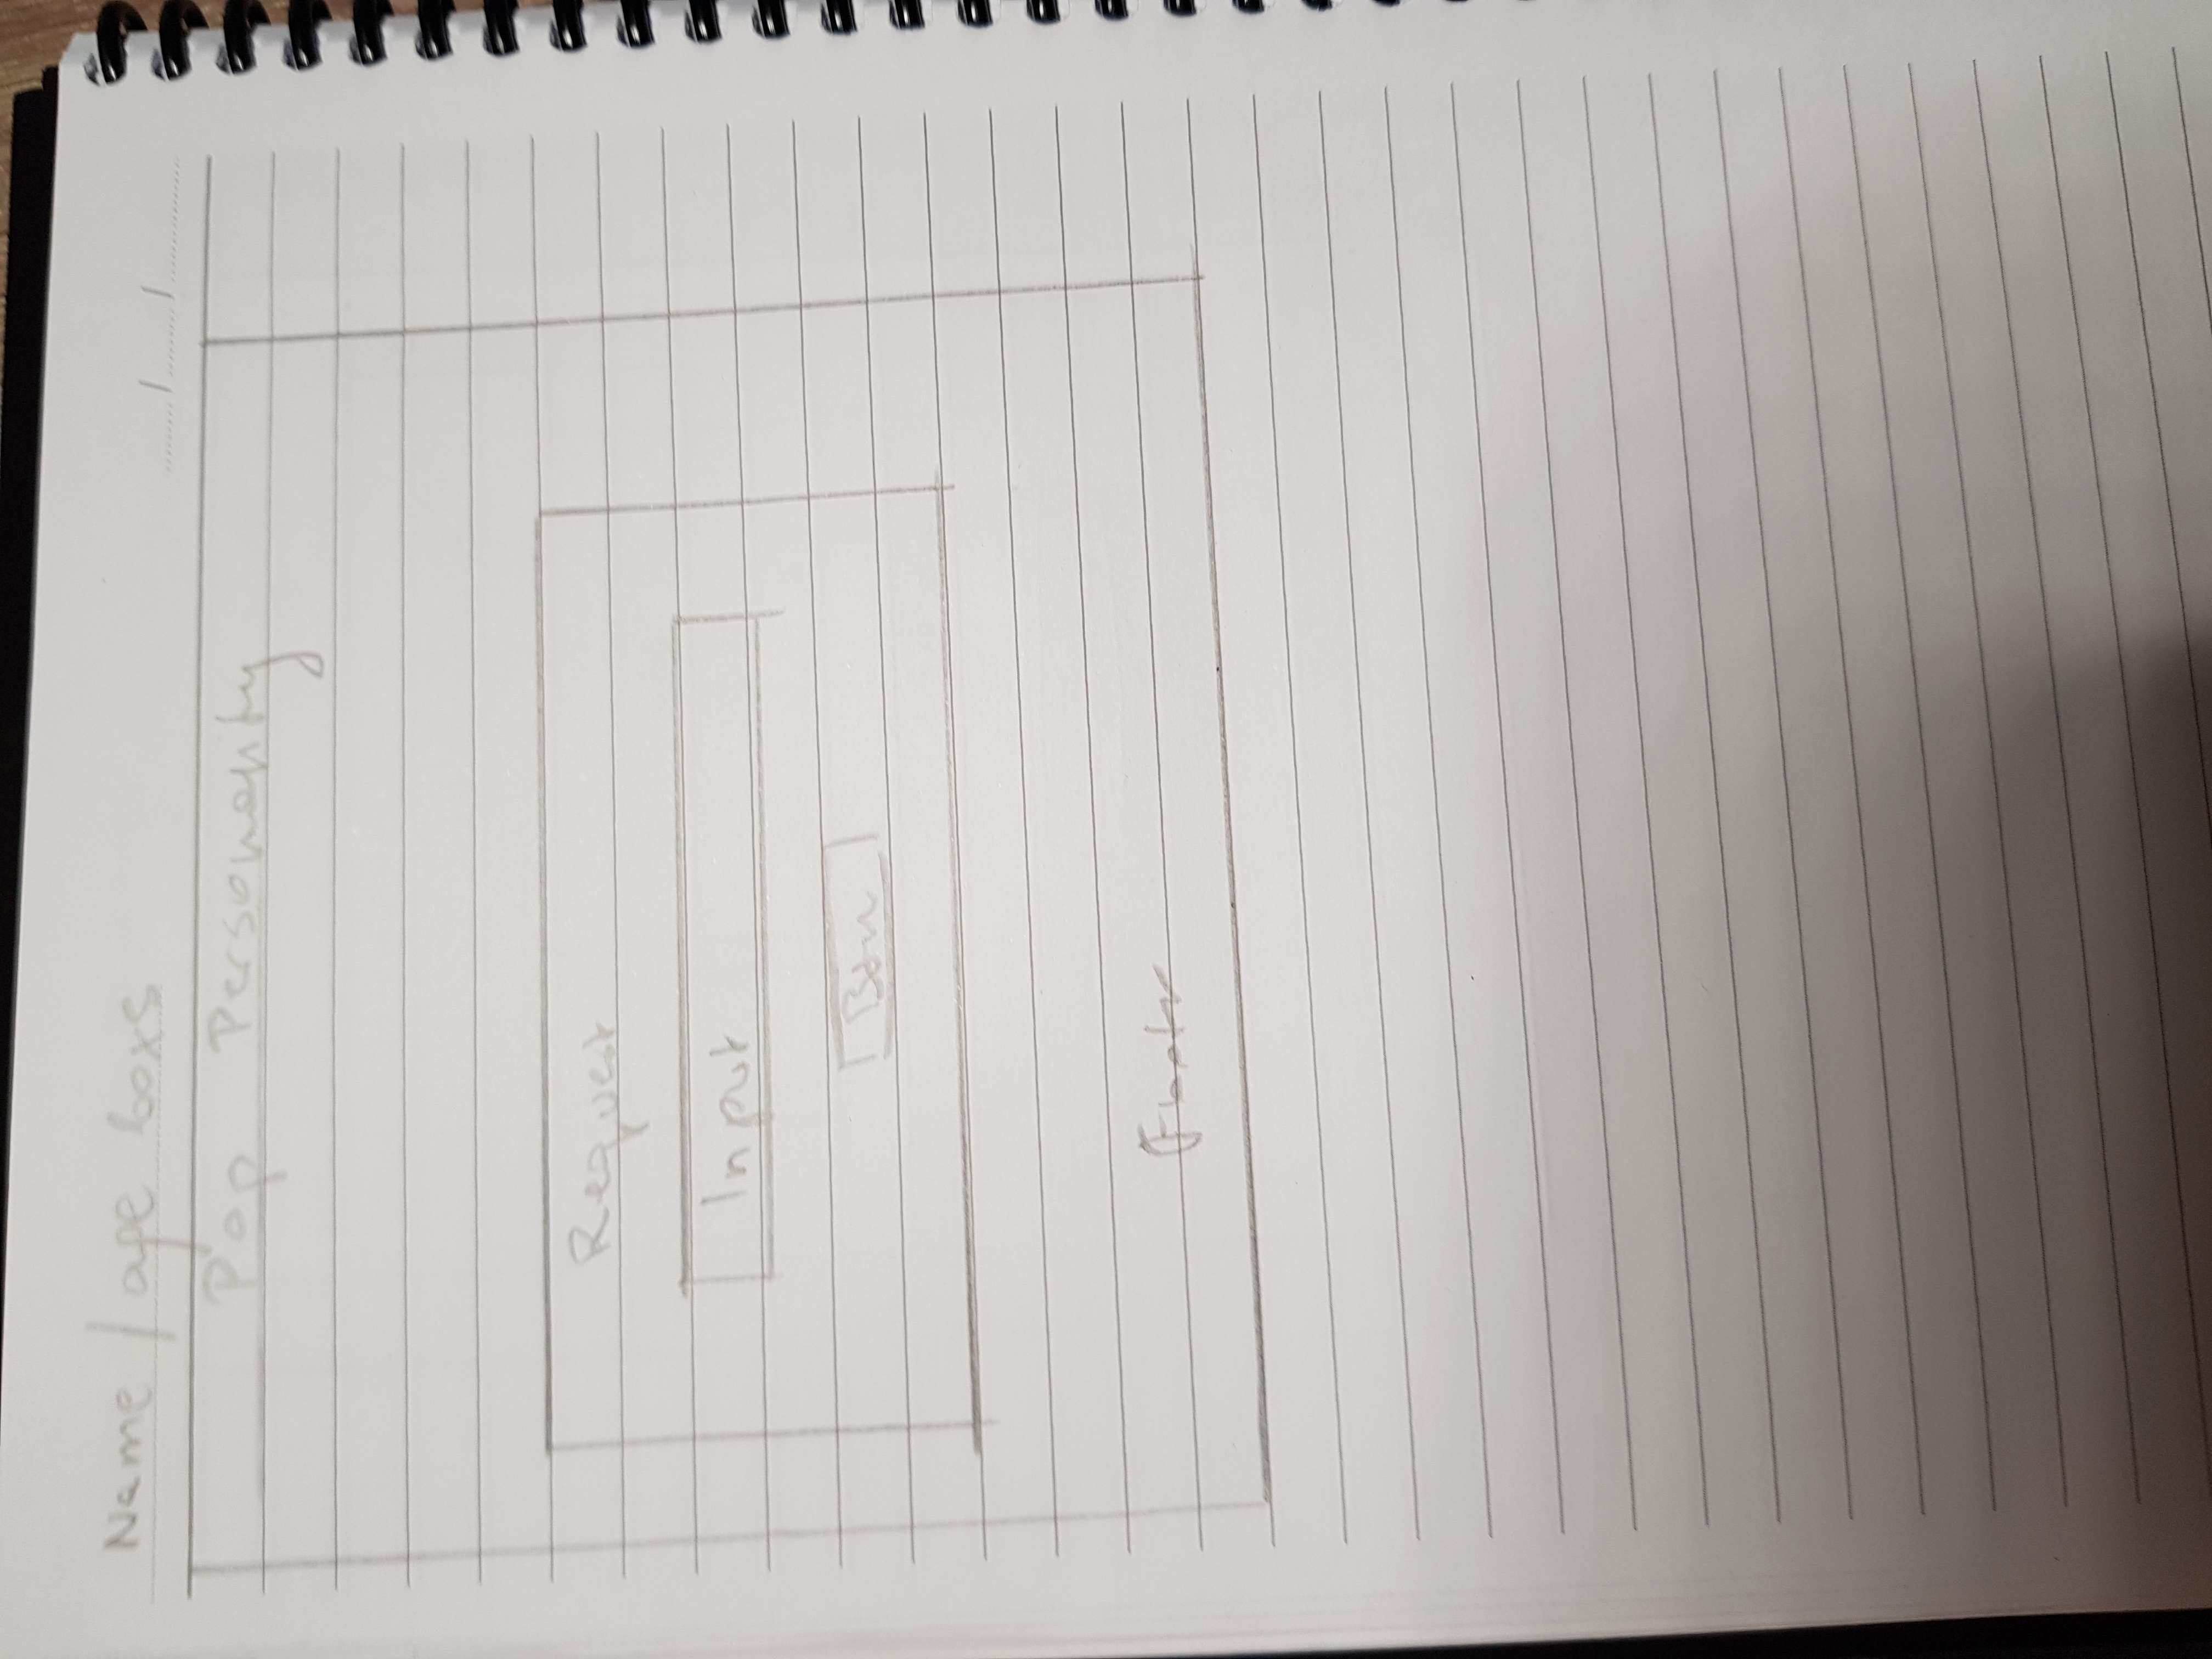 Name / age boxs
Pop Personality
Request
Input
Btn
Footer